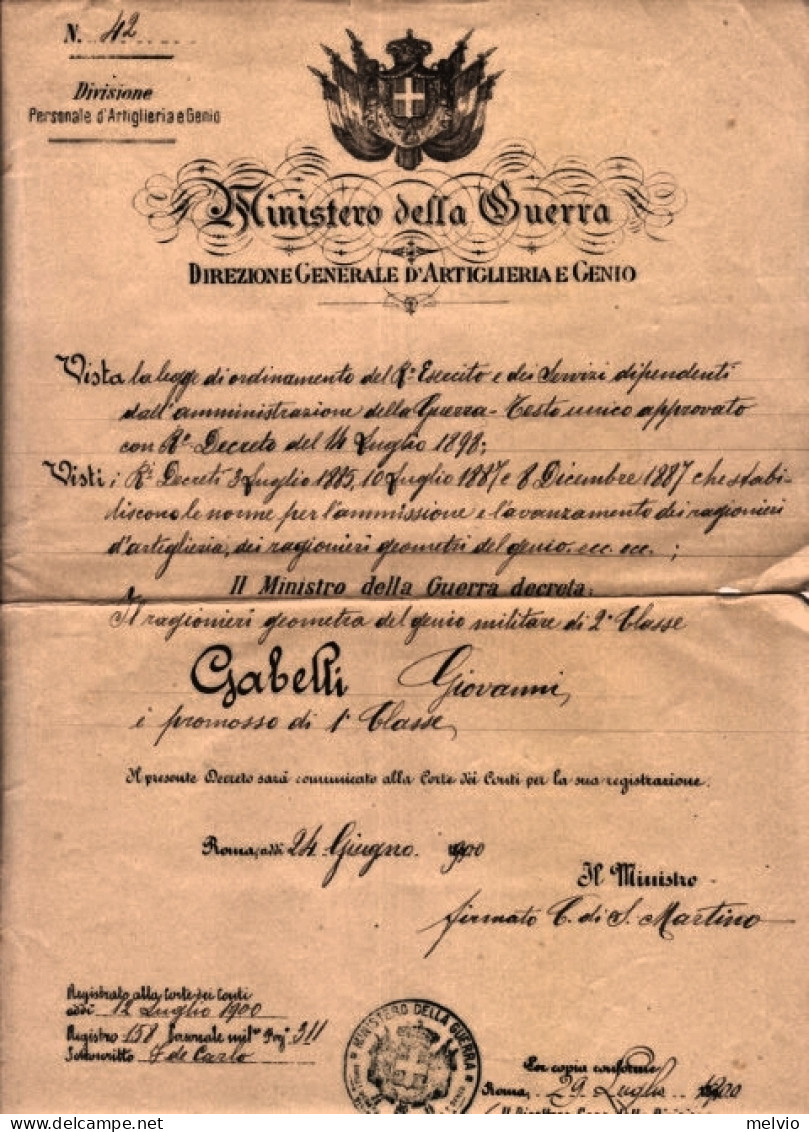 N. 42
Divisione
Personale d'Artiglieria e Genio
Ministero della Guerra
DIREZIONE GENERALE D'ARTIGLIERIA E GENIO
Vista la legge di ordinamento del R.º Esercito e dei Servizi dipendenti
dall'amministrazione della Guerra - Testo unico approvato
con R.º Decreto del 14 Luglio 1898;
Visti i R.i Decreti 3 Luglio 1885, 10 Luglio 1887 e 8 Dicembre 1887 che stabi-
liscono le norme per l'ammissione e l'avanzamento dei ragionieri
d'artiglieria, dei ragionieri geometri del genio. ecc. ecc. ;
Il Ministro della Guerra decreta:
Il ragionieri geometra del genio militare di 2ª Classe
Gabelli Giovanni,
è promosso di 1ª Classe,
Il presente Decreto sarà comunicato alla Corte dei Conti per la sua registrazione.
Roma, addì 24 Giugno 1900
Il Ministro
firmato C. di S. Martino
Registrato alla Corte dei Conti
addì 12 Luglio 1900
Registro 158 Personale mil.re Pag.ª 311
Sottoscritto F. de Carlo
MINISTERO DELLA GUERRA
Per copia conforme
Roma, 29 Luglio 1900
Il Direttore Capo della Divisione
melvio